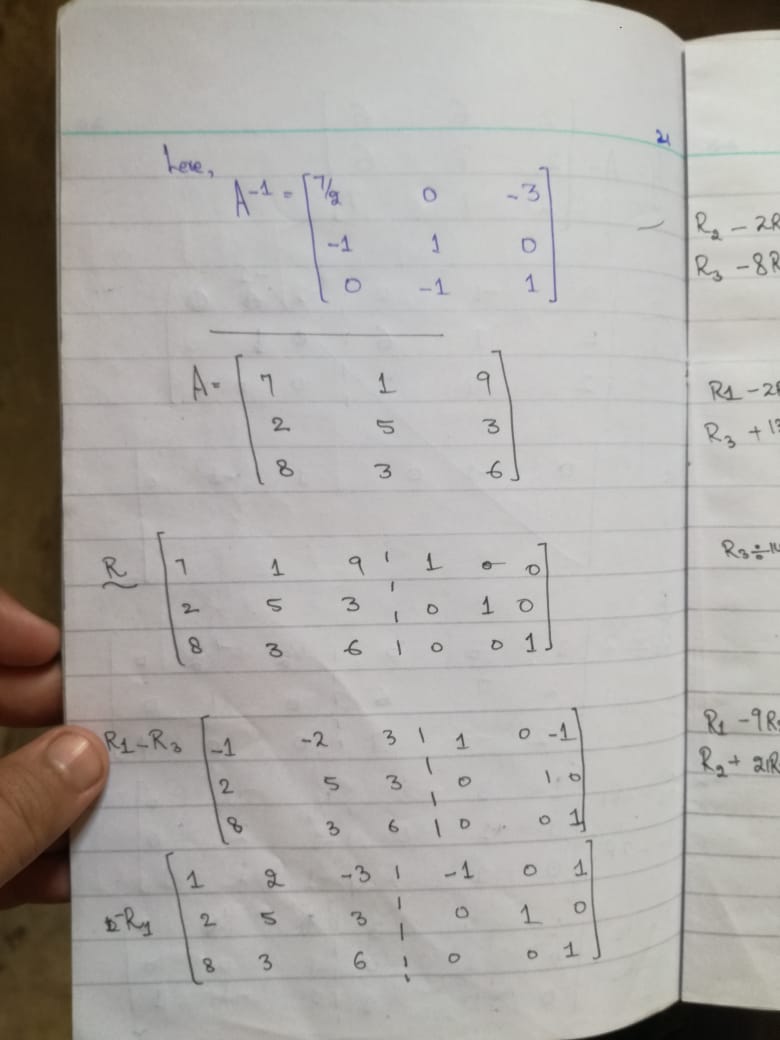 21
here,
A-1 = [7/2 0 -3
-1 1 0
0 -1 1]
A= [7 1 9
2 5 3
8 3 6]
R [7 1 9 | 1 0 0
2 5 3 | 0 1 0
8 3 6 | 0 0 1]
R1-R3 [-1 -2 3 | 1 0 -1
2 5 3 | 0 1 0
8 3 6 | 0 0 1]
[1 2 -3 | -1 0 1
-R1 2 5 3 | 0 1 0
8 3 6 | 0 0 1]
R2 - 2R
R3 - 8R
R1 - 2R
R3 + 13
R3 ÷ 14
R1 - 9R
R2 + 21R